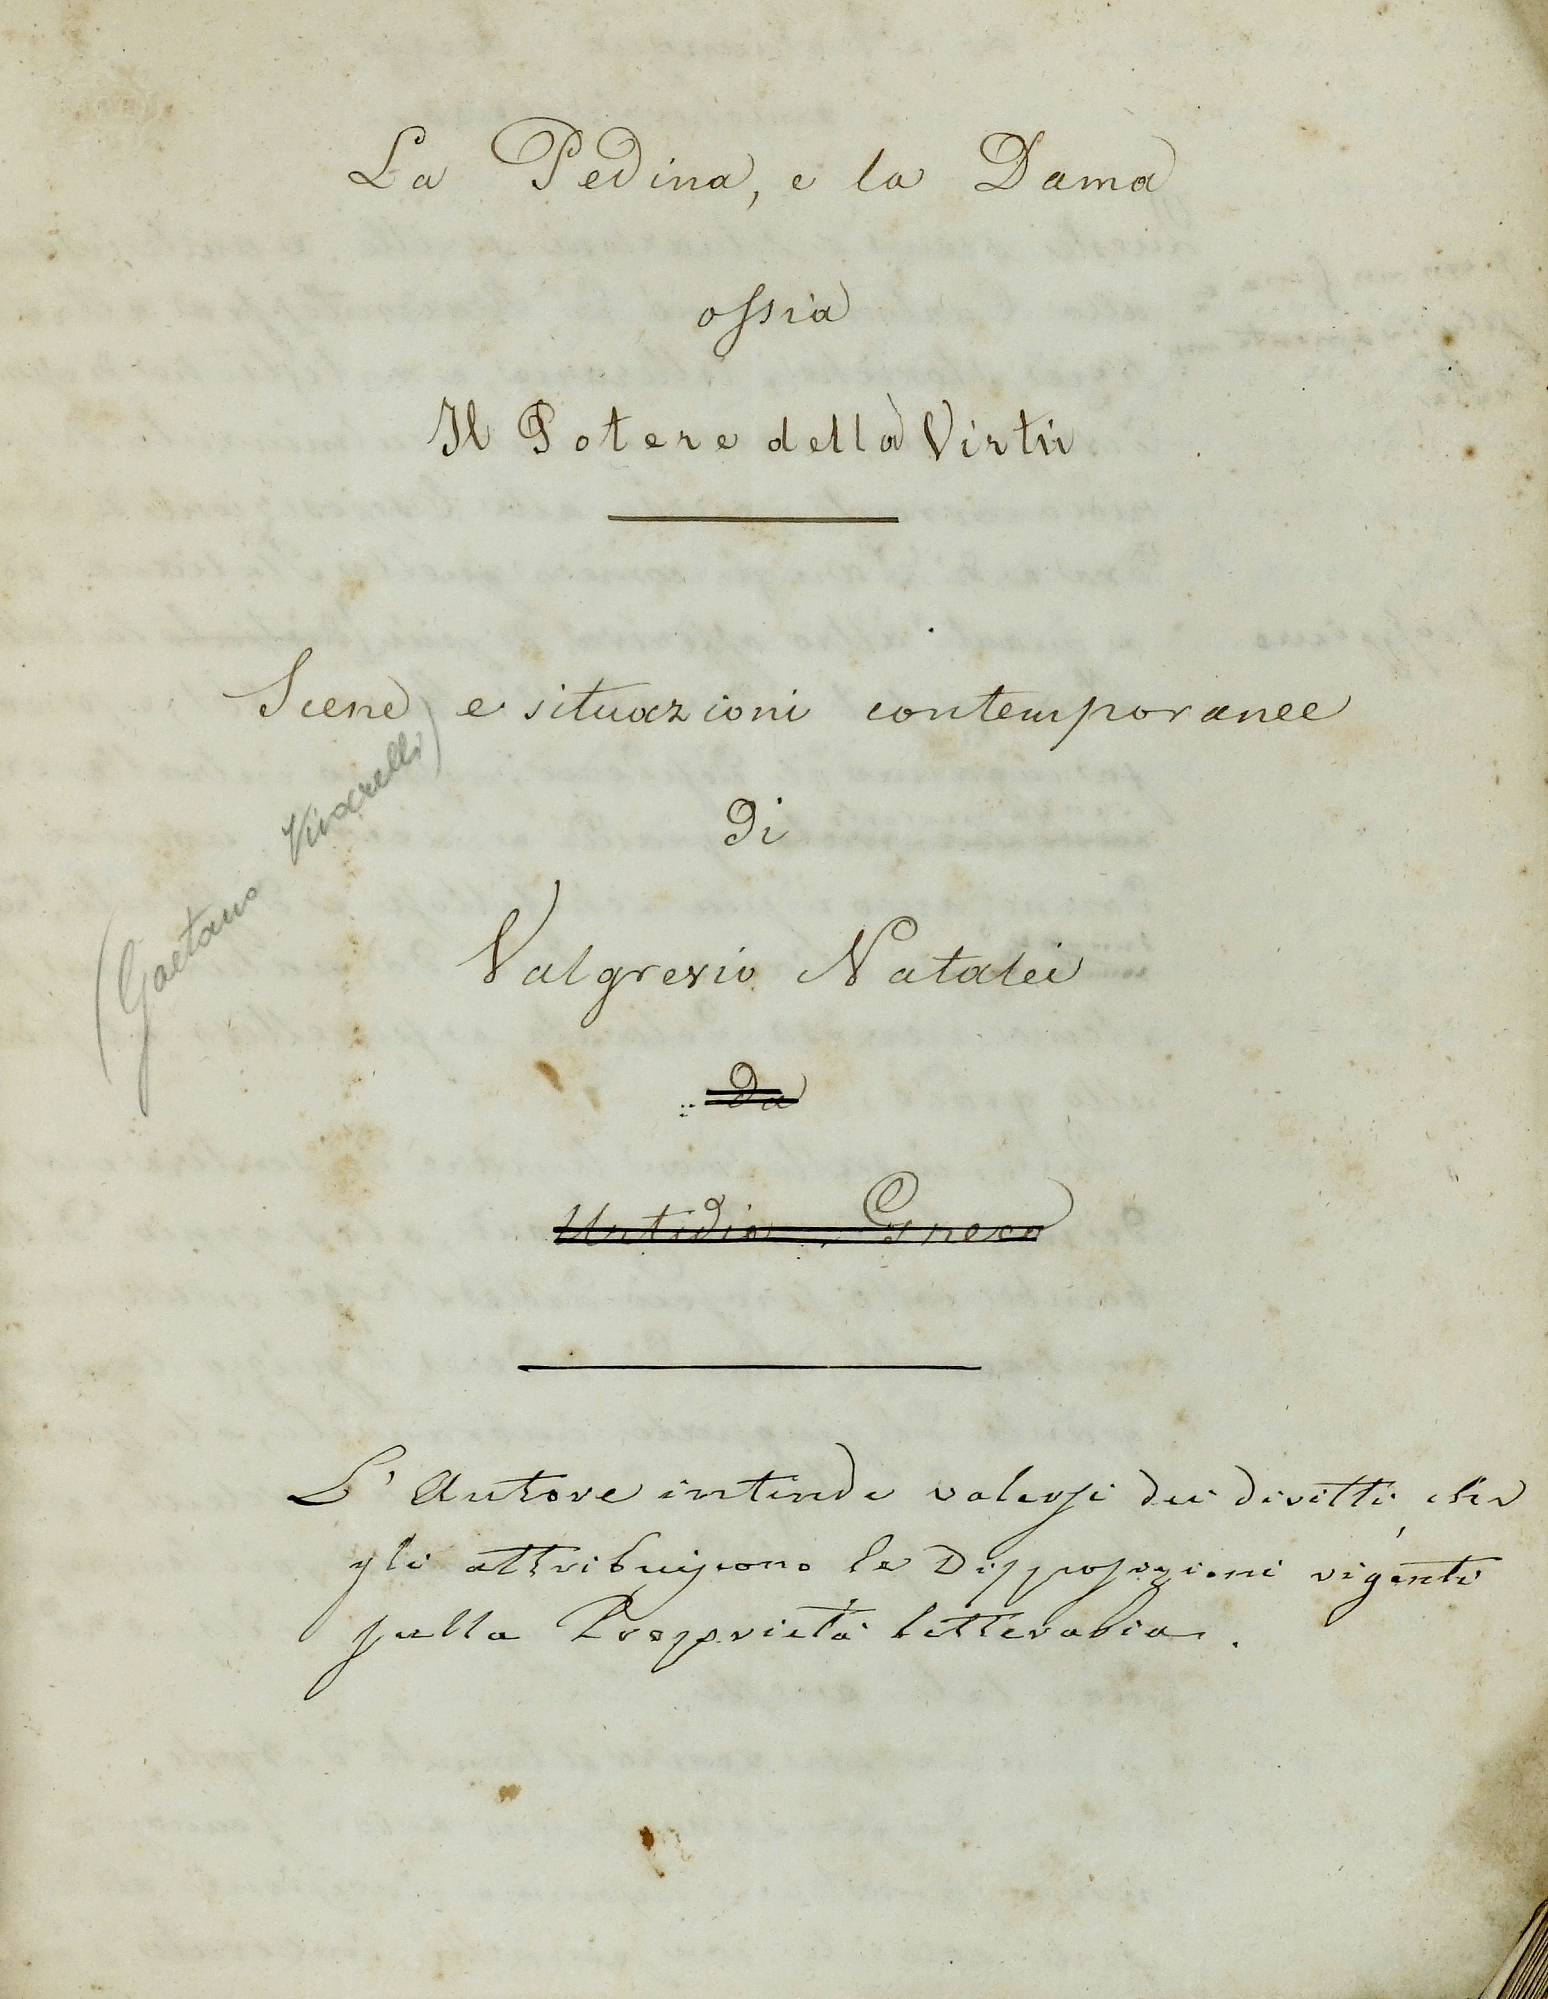 La Pedina, e la Dama
ossia
Il Potere della Virtù
Scene e situazioni contemporanee
(Gaetano Vivarelli)
Di
Valgrevio Natalei
Da
L'Autore intende valersi dei diritti, che
gli attribuiscono le Disposizioni vigenti
sulla Proprietà letteraria.